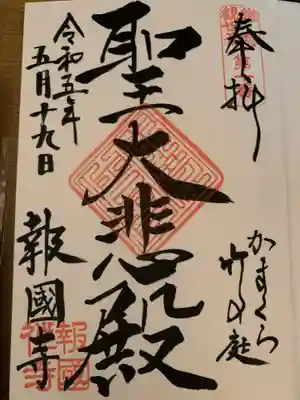 奉拝
かまくら
竹の庭
聖大悲殿
令和五年
五月十九日
報國寺
報國
禅寺